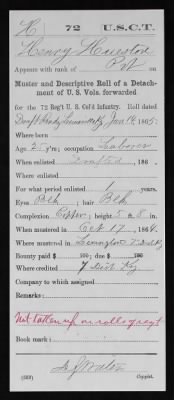 H 72 U.S.C.T.
Henry Hueston
Appears with rank of Pvt on
Muster and Descriptive Roll of a Detach-
ment of U. S. Vols. forwarded
for the 72 Reg't U. S. Col'd Infantry. Roll dated
Jan 14, 1865.
Where born
Age 25 y'rs; occupation Laborer
When enlisted Drafted, 186
Where enlisted
For what period enlisted 1 years.
Eyes Blk; hair Blk
Complexion Copper; height 5 ft. 8 in.
When mustered in Oct 17, 1864.
Where mustered in Lexington
Bounty paid $ 100; due $ 100
Where credited 7 Dist Ky
Company to which assigned
Remarks:
Not taken up on rolls of regt
Book mark:
Copyist.